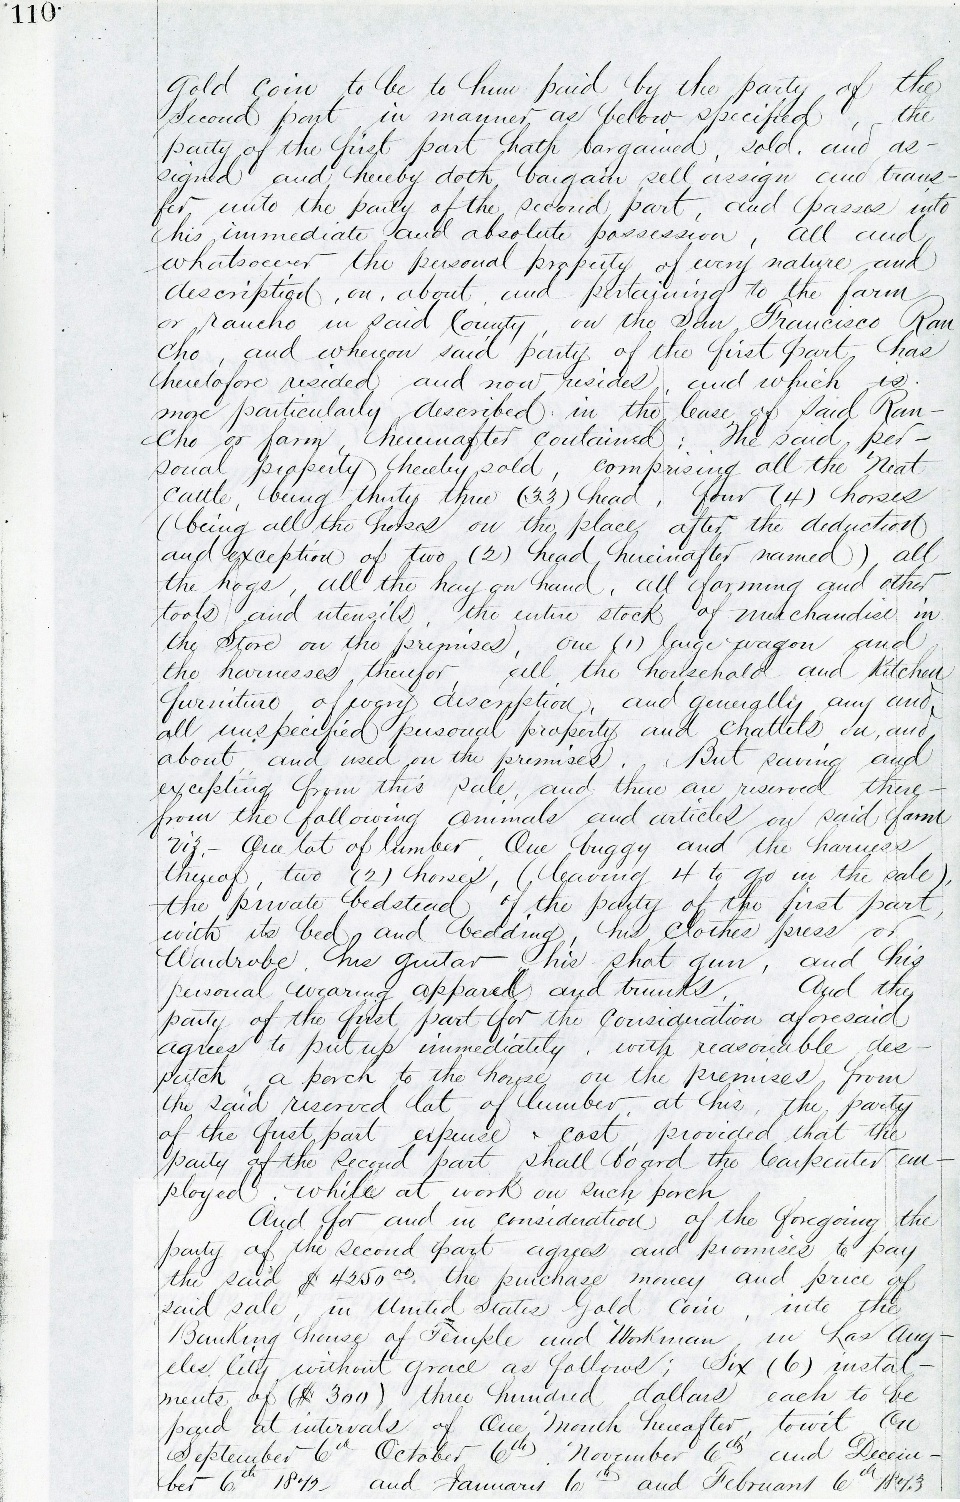 110
Gold coin to be to him paid by the party of the
Second part in manner as below specified, the
party of the first part hath bargained, sold, and as-
signed and hereby doth bargain sell assign and trans-
fer unto the party of the second part, and passes into
his immediate and absolute possession, all and
whatsoever the personal property of every nature and
description, on, about, and pertaining to the farm
or rancho in said County, on the San Francisco Ran
cho, and whereon said party of the first part, has
heretofore resided and now resides, and which is
more particularly described in the lease of said Ran-
cho or farm, hereinafter contained; The said per-
sonal property hereby sold, comprising all the Neat
Cattle, being thirty three (33) head, four (4) horses
(being all the horses on the place after the deduction
and exception of two (2) head hereinafter named), all
the hogs, all the hay on hand, all farming and other
tools and utensils, the entire stock of merchandise in
the Store on the premises, one (1) large wagon and
the harnesses therefor, all the household and Kitchen
furniture of every description, and generally any and
all unspecified personal property and chattels in, and
about, and used on the premises. But saving and
excepting from this sale, and there are reserved there-
from the following animals and articles on said farm
viz,- One lot of lumber, One buggy and the harness
thereof, two (2) horses, (leaving 4 to go in the sale),
the private bedstead of the party of the first part,
with its bed and bedding, his clothes press or
Wardrobe, his guitar his shot gun, and his
personal wearing apparel and trunks. And the
party of the first part for the consideration aforesaid
agrees to put up immediately, with reasonable des-
patch, a porch to the house on the premises, from
the said reserved lot of lumber, at his, the party
of the first part expense & cost, provided that the
party of the second part shall board the Carpenter em-
ployed, while at work on such porch
And for and in consideration of the foregoing the
party of the second part agrees and promises to pay
the said $4250 00 the purchase money and price of
said sale, in United States Gold Coin, into the
Banking house of Temple and Workman, in Los Ang-
eles City, without grace as follows; Six (6) instal-
ments of ($300) three hundred dollars each to be
paid at intervals of One Month hereafter, towit On
September 6th October 6th, November 6th and Decem-
ber 6th 1872 and January 6th and February 6th 1873